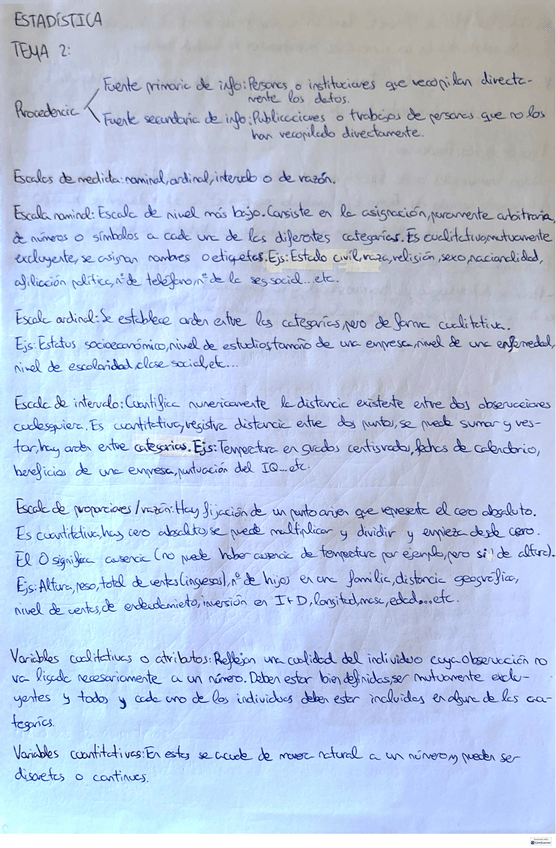 ESTADÍSTICA
TEMA 2:
Procedencia
Fuente primaria de info: Personas o instituciones que recopilan directa-
mente los datos.
Fuente secundaria de info: Publicaciones o trabajos de personas que no los
han recopilado directamente.
Escalas de medida: nominal, ordinal, intervalo o de razón.
Escala nominal: Escala de nivel más bajo. Consiste en la asignación, puramente arbitraria,
de números o símbolos a cada una de las diferentes categorías. Es cualitativa, mutuamente
excluyente, se asignan nombres o etiquetas. Ejs: Estado civil, raza, religión, sexo, nacionalidad,
afiliación política, nº de teléfono, nº de la seg. social... etc.
Escala ordinal: Se establece orden entre las categorías, pero de forma cualitativa.
Ejs: Estatus socioeconómico, nivel de estudios, tamaño de una empresa, nivel de una enfermedad,
nivel de escolaridad, clase social, etc...
Escala de intervalo: Cuantifica numéricamente la distancia existente entre dos observaciones
cualesquiera. Es cuantitativa, registra distancia entre dos puntos, se puede sumar y res-
tar, hay orden entre categorías. Ejs: Temperatura en grados centígrados, fechas de calendario,
beneficios de una empresa, puntuación del IQ... etc.
Escala de proporciones/razón: Hay fijación de un punto origen que representa el cero absoluto.
Es cuantitativa, hay cero absoluto, se puede multiplicar y dividir y empieza desde cero.
El 0 significa ausencia (no puede haber ausencia de temperatura por ejemplo, pero sí de altura).
Ejs: Altura, peso, total de ventas (ingresos), nº de hijos en una familia, distancia geográfica,
nivel de ventas, de endeudamiento, inversión en I+D, longitud, masa, edad... etc.
Variables cualitativas o atributos: Reflejan una cualidad del individuo cuya observación no
va ligada necesariamente a un número. Deben estar bien definidas, ser mutuamente exclu-
yentes y todos y cada uno de los individuos deben estar incluidos en alguna de las ca-
tegorías.
Variables cuantitativas: En estas se acude de manera natural a un número y pueden ser
discretas o continuas.